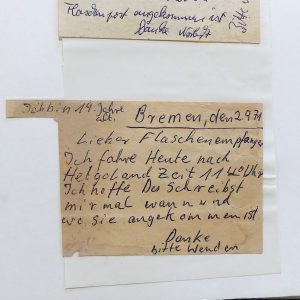 Flaschenpost angekommen ist
Danke
Bitte
Ich bin 19. Jahre
alt.
Bremen, den 2.9.71
Lieber Flaschenempfänger
Ich fahre Heute nach
Helgoland Zeit 11 Uhr
Ich hoffe Du Schreibst
mir mal wann und
wo sie angekommen ist
Danke
bitte wenden